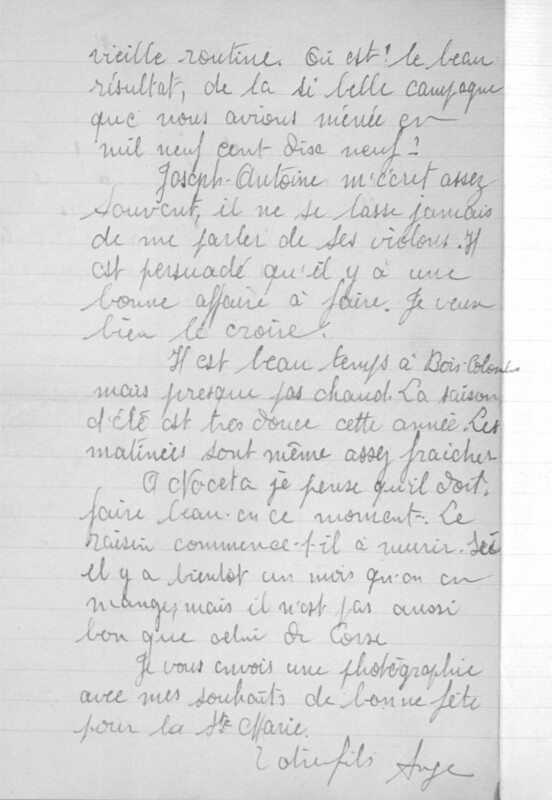 vieille routine. Où est! le beau
résultat, de la si belle campagne
que nous avions menée en
mil neuf cent disc neuf?
Joseph-Antoine m'écret assez
souvent, il ne se lasse jamais
de me parler de ses violons. Il
est persuadé qu'il y a une
bonne affaire à faire. Je veux
bien le croire.
Il est beau temps à Bois-Colombes
mais presque pas chaud. La saison
d'été est très douce cette année. Les
matinées sont même assez fraiches
O Noceta je pense qu'il doit.
faire beau en ce moment. Le
raisin commence-t-il à murir. Ici
il y a bientôt un mois qu'on en
mange, mais il n'est pas aussi
bon que celui de Corse
Je vous envois une photographie
avec mes souhaits de bonne fête
pour la Ste Marie.
Votre fils Ange